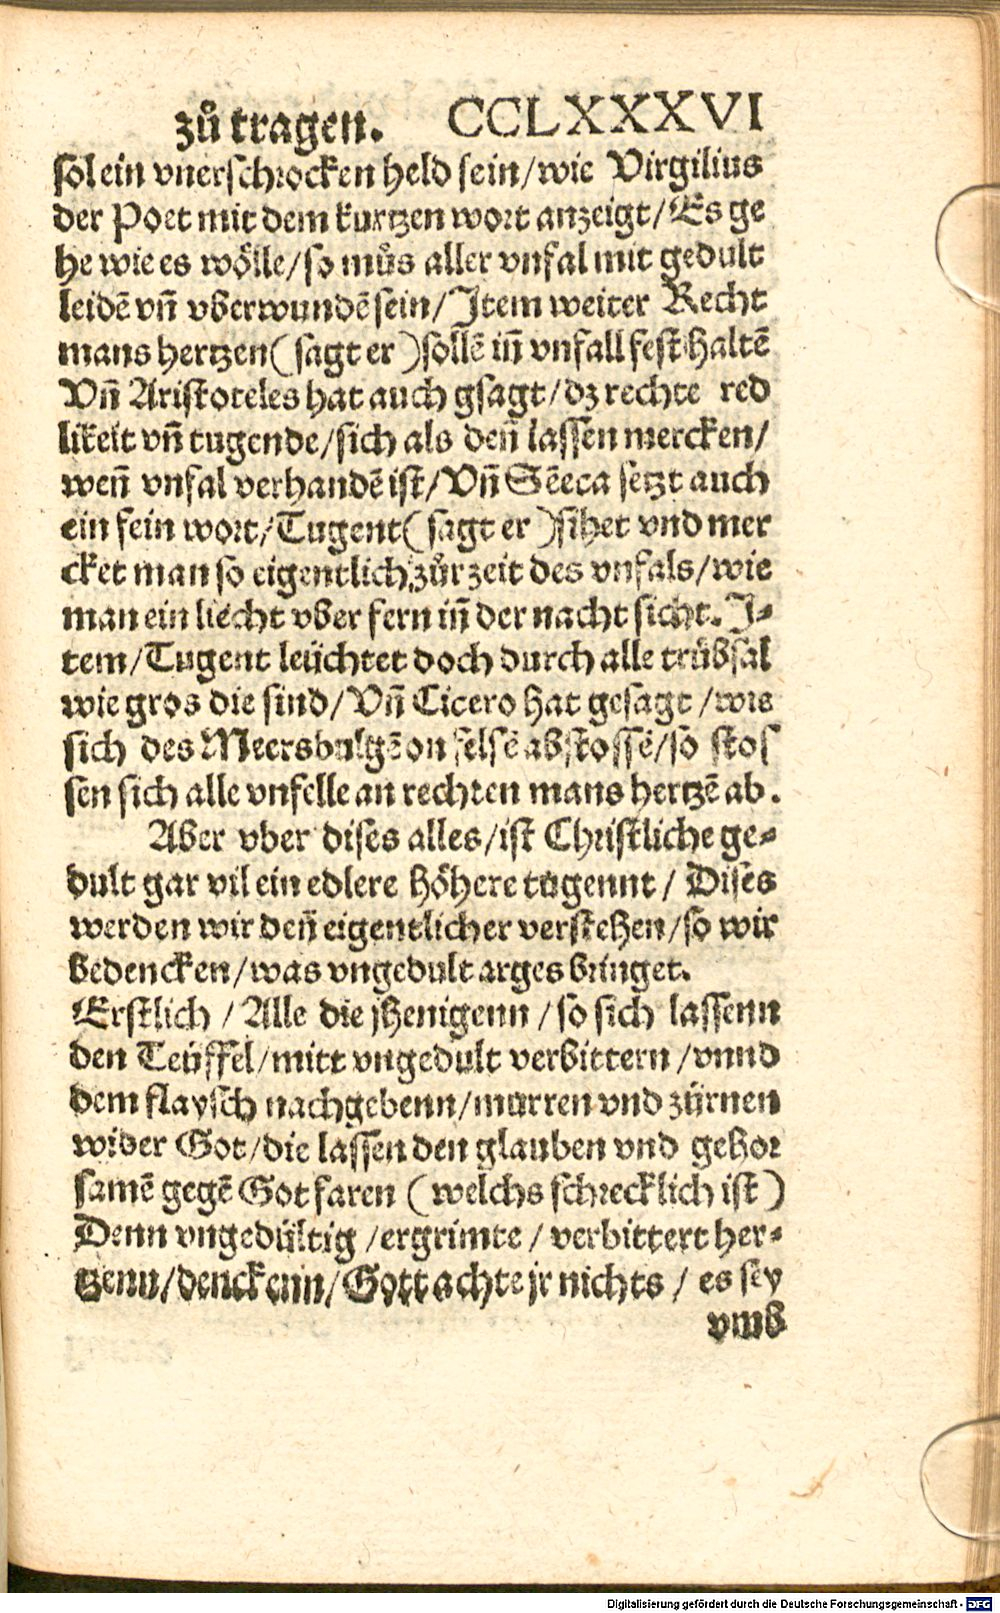 zů tragen. CCLXXXVI
sol ein vnerschrocken held sein/wie Virgilius
der Poet mit dem kurtzen wort anzeigt/Es ge
he wie es wölle/so můs aller vnfal mit gedult
leidē vñ vberwundē sein/Item weiter Recht
mans hertzen(sagt er)sollē iñ vnfall fest haltē
Vñ Aristoteles hat auch gsagt/dz rechte red
likeit vñ tugende/sich als deñ lassen mercken/
weñ vnfal verhandē ist/Vñ Sēeca setzt auch
ein fein wort/Tugent(sagt er)sihet vnd mer
cket man so eigentlich zůr zeit des vnfals/wie
man ein liecht vber fern iñ der nacht sicht. J-
tem/Tugent leüchtet doch durch alle trübsal
wie gros die sind/Vñ Cicero hat gesagt/wie
sich des Meers bulgē on felsē abstossē/so stos
sen sich alle vnfelle an rechten mans hertzē ab.
Aber vber dises alles/ist Christliche ge-
dult gar vil ein edlere höhere tugennt/ Dises
werden wir deñ eigentlicher verstehen/so wir
bedencken/was vngedult arges bringet.
Erstlich / Alle die jhenigenn / so sich lassenn
den Teüffel/mitt vngedult verbittern/vnnd
dem flaysch nachgebenn/murren vnd zürnen
wider Got/die lassen den glauben vnd gehor
samē gegē Got faren (welchs schrecklich ist)
Denn vngedültig /ergrimte / verbittert her-
tzenn/denckenn/Gott achte jr nichts / es sey
vmb
Digitalisierung gefördert durch die Deutsche Forschungsgemeinschaft - DFG